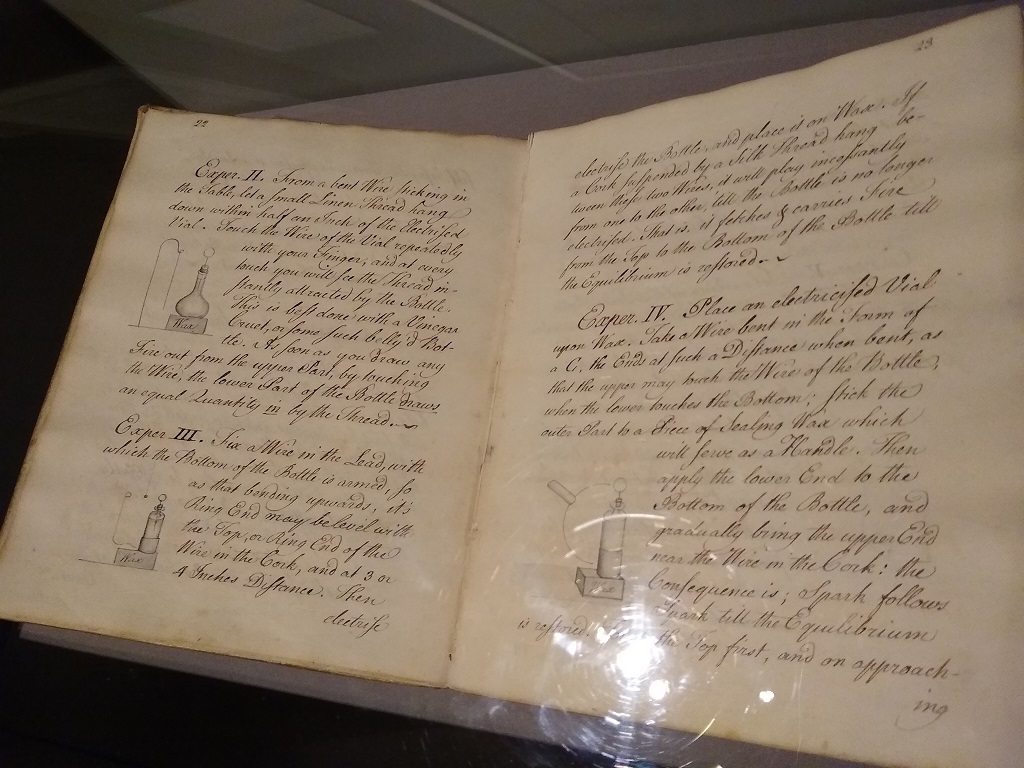 22
Exper. II. From a bent Wire sticking in
the Table, let a small Linen Thread hang
down within half an Inch of the Electrised
Vial. Touch the Wire of the Vial repeatedly
with your Finger, and at every
touch you will see the Thread in-
stantly attracted by the Bottle.
This is best done with a Vinegar
Cruet, or some such belly'd Bot-
tle. As soon as you draw any
Fire out from the upper Part, by touching
the Wire, the lower Part of the Bottle draws
an equal Quantity in by the Thread.
Wire
Exper. III. Fix a Wire in the Lead, with
which the Bottom of the Bottle is armed, so
as that bending upwards, it's
Ring End may be level with
the Top, or Ring End of the
Wire in the Cork, and at 3 or
4 Inches Distance. Then
electrise
Wax
23
electrise the Bottle, and place it on Wax. If
a Cork suspended by a Silk Thread hang be-
tween these two Wires, it will play incessantly
from one to the other, till the Bottle is no longer
electrised. That is, it fetches & carries Fire
from the Top to the Bottom of the Bottle till
the Equilibrium is restored.
Exper. IV. Place an electricised Vial
upon Wax. Take a Wire bent in the Form of
a C, the Ends at such a Distance when bent, as
that the upper may touch the Wire of the Bottle,
when the lower touches the Bottom; stick the
outer Part to a Piece of Sealing Wax which
will serve as a Handle. Then
apply the lower End to the
Bottom of the Bottle, and
gradually bring the upper End
near the Wire in the Cork: the
Consequence is; Spark follows
Spark till the Equilibrium
is restored. the Top first, and on approach-
ing